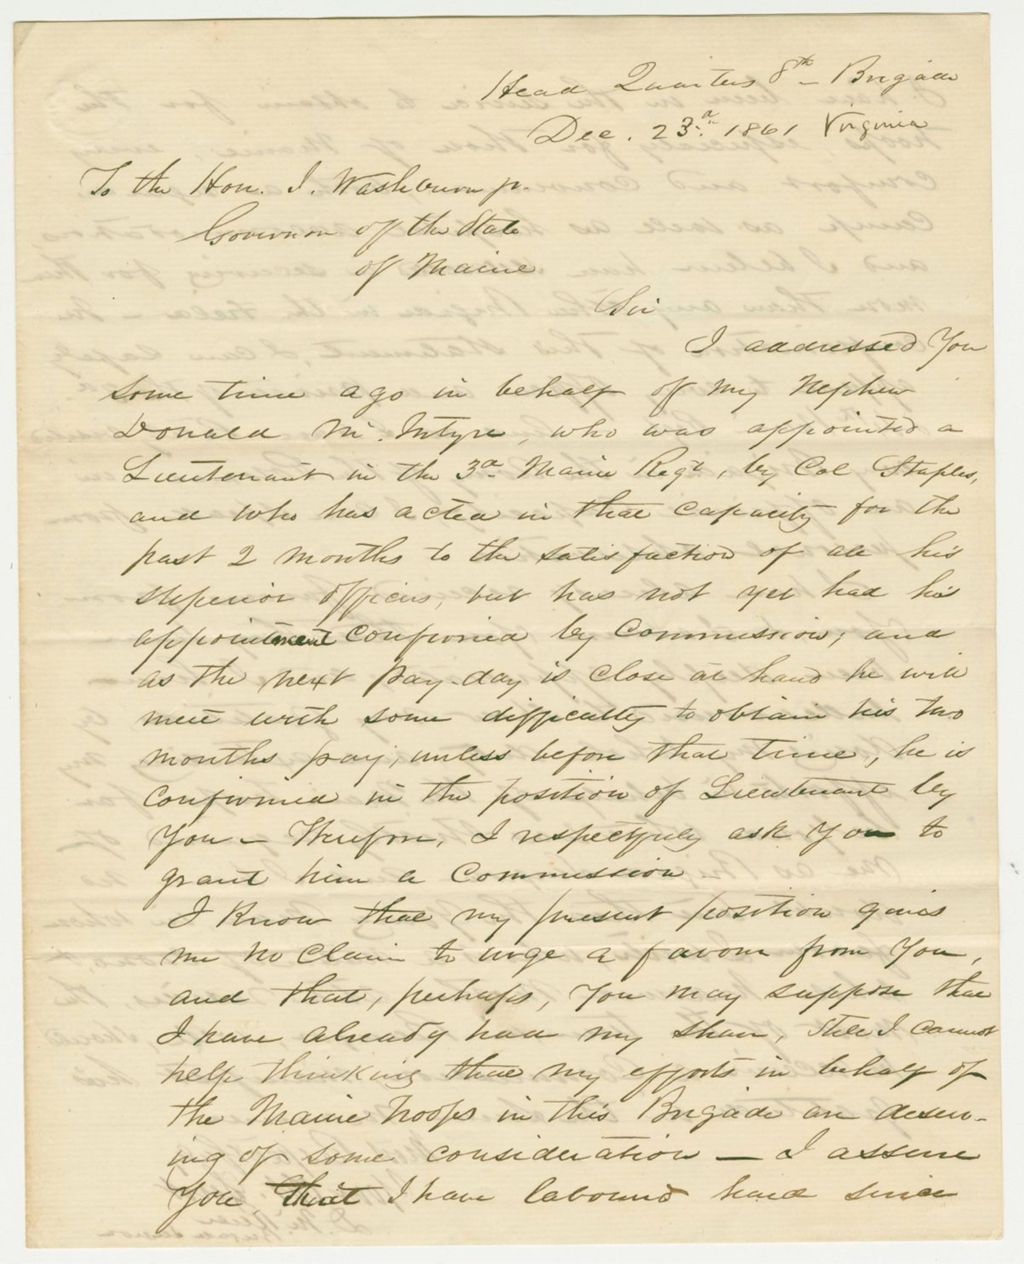 Head Quarters 8th Brigade
Dec. 23d. 1861 Virginia
To the Hon. I. Washburn jr.
Governor of the State
of Maine
Sir
I addressed You
some time ago in behalf of my Nephew
Donald Mc. Intyre, who was appointed a
Lieutenant in the 3d Maine Regt, by Col Staples,
and who has acted in that capacity for the
past 2 months to the satisfaction of all his
superior officers, but has not yet had his
appointment confirmed by Commission; and
as the next pay-day is close at hand he will
meet with some difficulty to obtain his two
months pay, unless before that time, he is
confirmed in the position of Lieutenant by
You — Therefore, I respectfully ask You to
grant him a Commission
I Know that my present position gives
me no Claim to urge a favour from You,
and that, perhaps, You may suppose that
I have already had my share, still I cannot
help thinking that my efforts in behalf of
the Maine troops in this Brigade are deserv-
ing of some consideration — I assure
You that I have laboured hard since